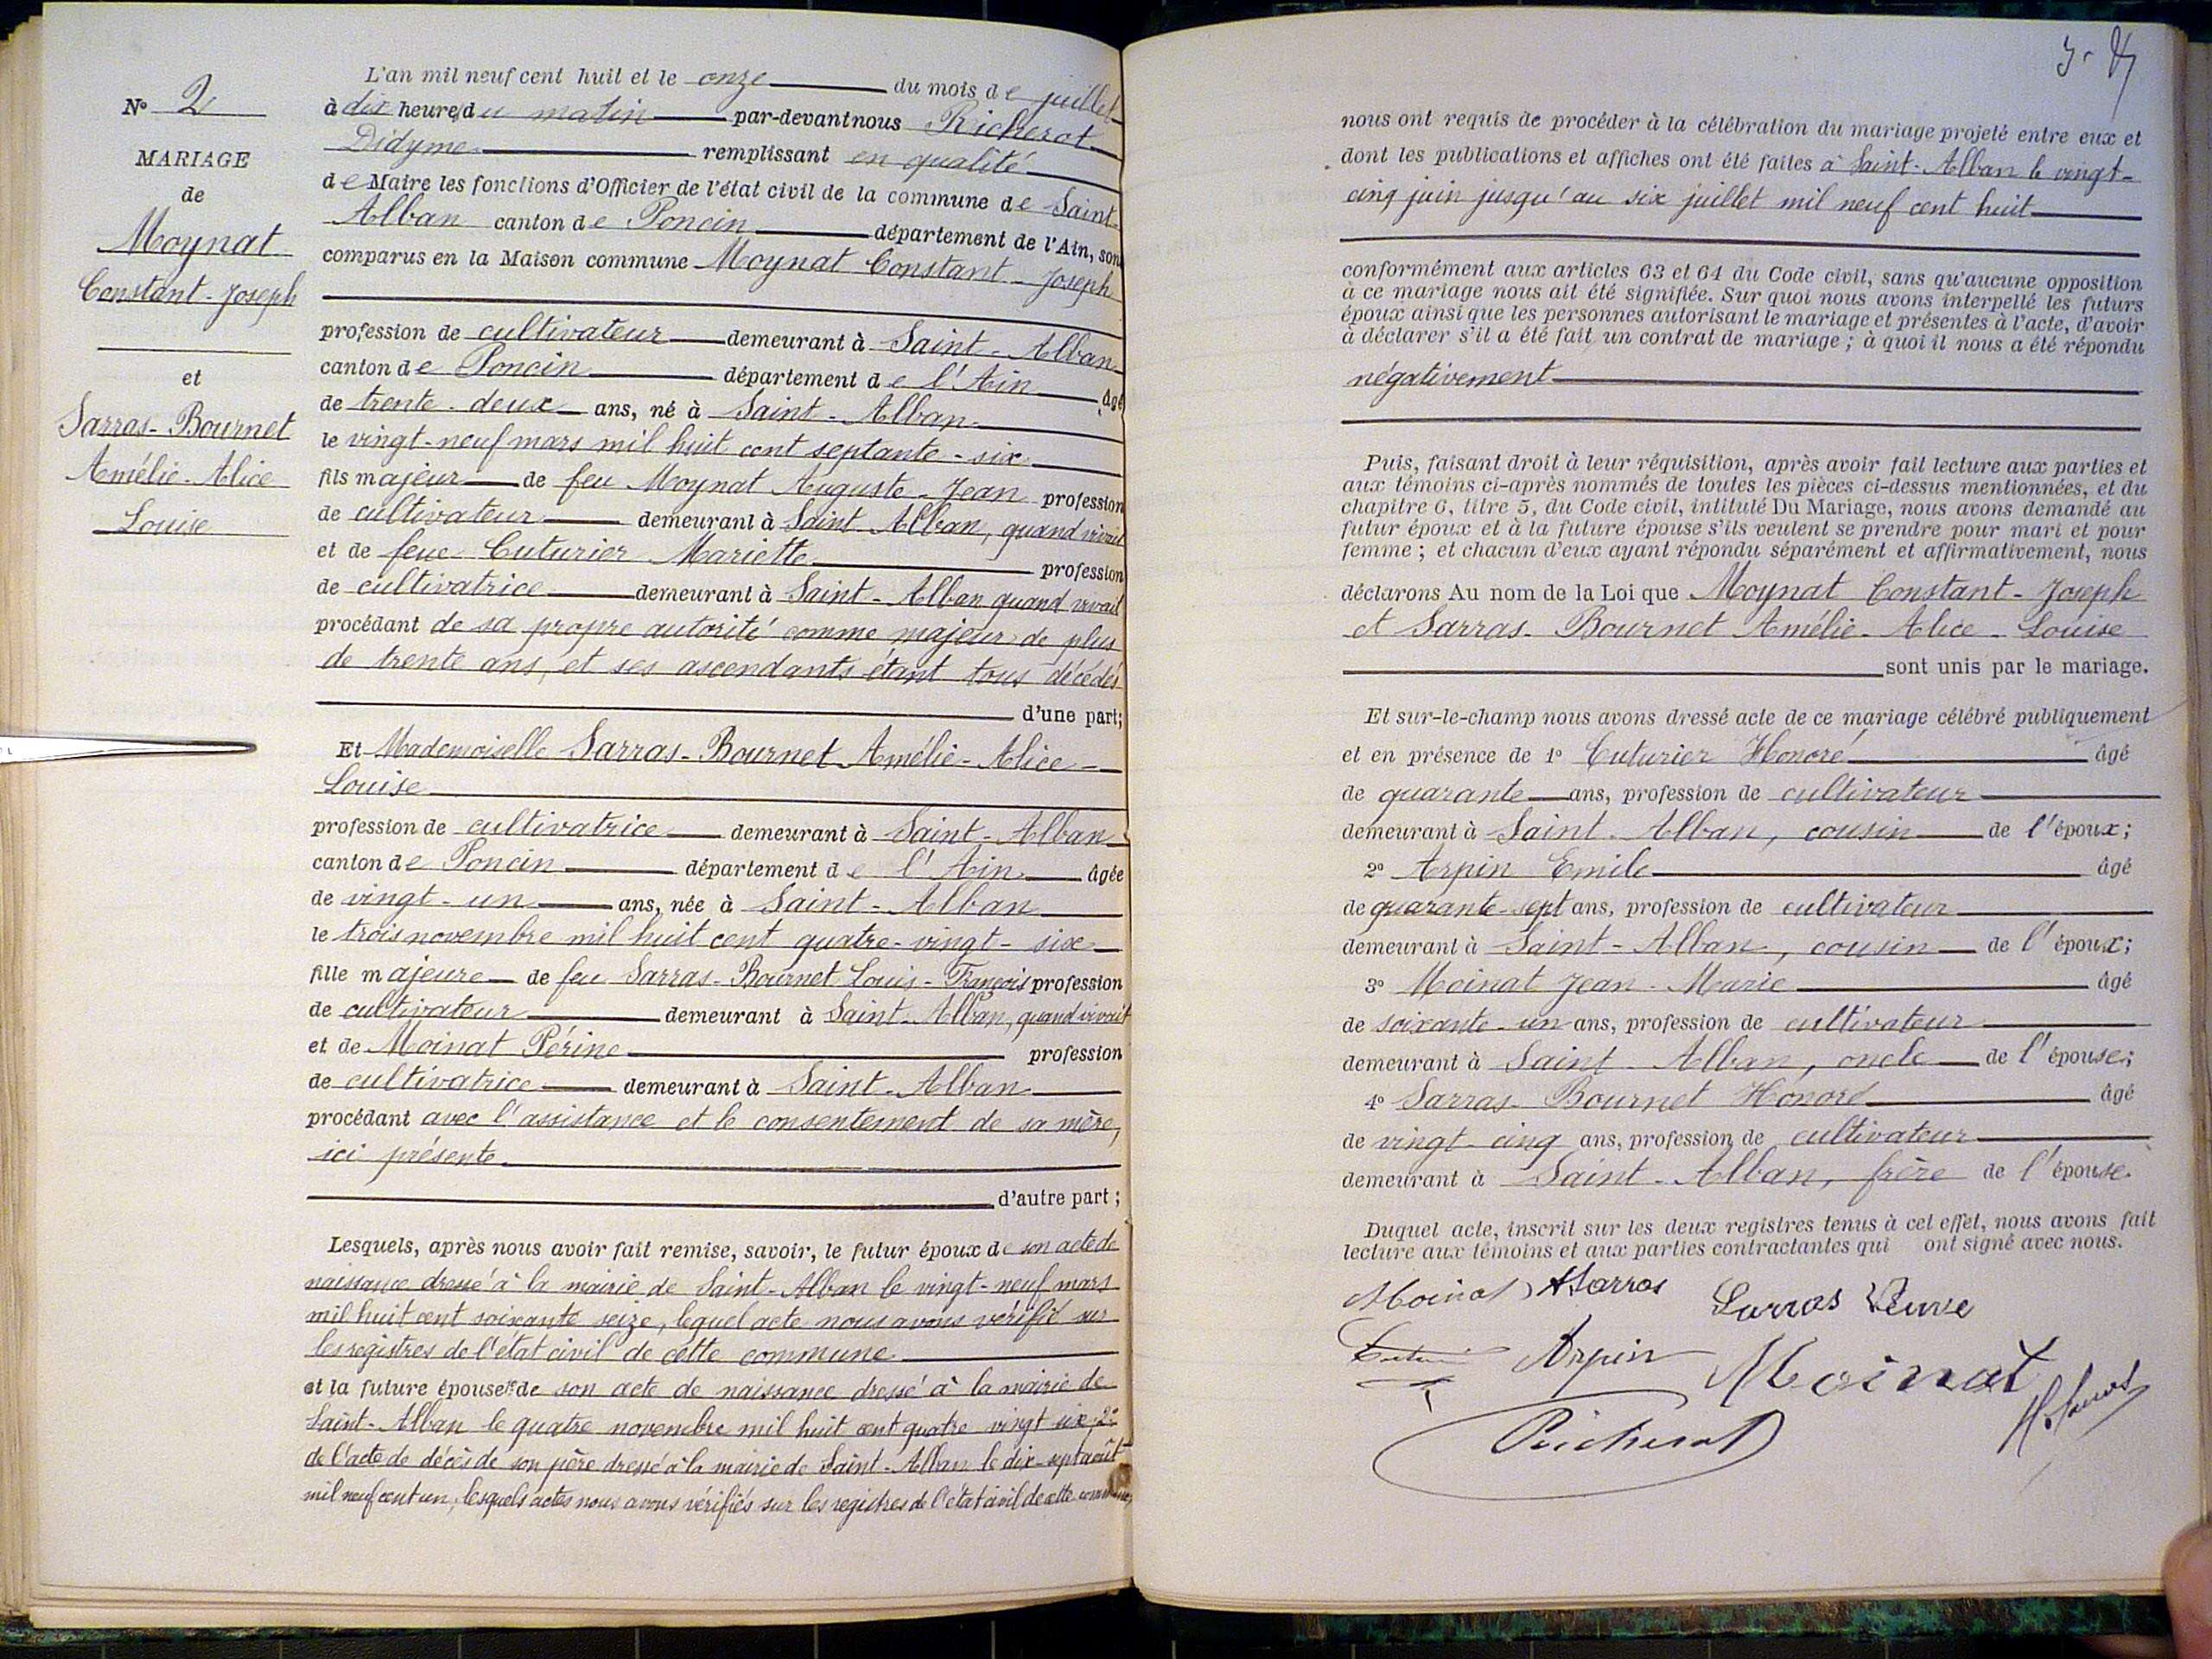 N° 2
MARIAGE
de
Moynat
Constant-Joseph
et
Sarras-Bournet
Amélie-Alice
Louise
L'an mil neuf cent huit et le onze du mois de juillet
à dix heure du matin par-devant nous Richerot
Didyme remplissant en qualité
de Maire les fonctions d'Officier de l'état civil de la commune de Saint-
Alban canton de Poncin département de l'Ain, son
comparus en la Maison commune Moynat Constant-Joseph
profession de cultivateur demeurant à Saint-Alban
canton de Poncin département de l'Ain âgé
de trente-deux ans, né à Saint-Alban
le vingt-neuf mars mil huit cent septante-six
fils majeur de feu Moynat Auguste-Jean profession
de cultivateur demeurant à Saint-Alban, quand vivait
et de feue Cuturier Mariette profession
de cultivatrice demeurant à Saint-Alban quand vivait
procédant de sa propre autorité comme majeur de plus
de trente ans, et ses ascendants étant tous décédés
d'une part;
Et Mademoiselle Sarras-Bournet Amélie-Alice-
Louise
profession de cultivatrice demeurant à Saint-Alban
canton de Poncin département de l'Ain âgée
de vingt-un ans, née à Saint-Alban
le trois novembre mil huit cent quatre-vingt-six
fille majeure de feu Sarras-Bournet Louis-François profession
de cultivateur demeurant à Saint-Alban, quand vivait
et de Moinat Périne profession
de cultivatrice demeurant à Saint-Alban
procédant avec l'assistance et le consentement de sa mère,
ici présente
d'autre part;
Lesquels, après nous avoir fait remise, savoir, le futur époux de son acte de
naissance dressé à la mairie de Saint-Alban le vingt-neuf mars
mil huit cent soixante seize, lequel acte nous avons vérifié sur
les registres de l'état civil de cette commune
et la future épouse 1° de son acte de naissance dressé à la mairie de
Saint-Alban le quatre novembre mil huit cent quatre vingt six, 2°
de l'acte de décès de son père dressé à la mairie de Saint-Alban le dix-sept août
mil neuf cent un, lesquels actes nous avons vérifiés sur les registres de l'état civil de cette commune,
nous ont requis de procéder à la célébration du mariage projeté entre eux et
dont les publications et affiches ont été faites à Saint-Alban le vingt-
cinq juin jusqu'au six juillet mil neuf cent huit
conformément aux articles 63 et 64 du Code civil, sans qu'aucune opposition
à ce mariage nous ait été signifiée. Sur quoi nous avons interpellé les futurs
époux ainsi que les personnes autorisant le mariage et présentes à l'acte, d'avoir
à déclarer s'il a été fait un contrat de mariage; à quoi il nous a été répondu
négativement
Puis, faisant droit à leur réquisition, après avoir fait lecture aux parties et
aux témoins ci-après nommés de toutes les pièces ci-dessus mentionnées, et du
chapitre 6, titre 5, du Code civil, intitulé Du Mariage, nous avons demandé au
futur époux et à la future épouse s'ils veulent se prendre pour mari et pour
femme; et chacun d'eux ayant répondu séparément et affirmativement, nous
déclarons Au nom de la Loi que Moynat Constant-Joseph
et Sarras-Bournet Amélie-Alice-Louise
sont unis par le mariage.
Et sur-le-champ nous avons dressé acte de ce mariage célébré publiquement
et en présence de 1° Cuturier Honoré âgé
de quarante ans, profession de cultivateur
demeurant à Saint-Alban, cousin de l'époux;
2° Arpin Emile âgé
de quarante-sept ans, profession de cultivateur
demeurant à Saint-Alban, cousin de l'époux;
3° Moinat Jean-Marie âgé
de soixante-un ans, profession de cultivateur
demeurant à Saint-Alban, oncle de l'épouse;
4° Sarras-Bournet Honoré âgé
de vingt-cinq ans, profession de cultivateur
demeurant à Saint-Alban, frère de l'épouse.
Duquel acte, inscrit sur les deux registres tenus à cet effet, nous avons fait
lecture aux témoins et aux parties contractantes qui ont signé avec nous.
Moinat A Sarras Sarras Veuve
Arpin Moinat
Richerot